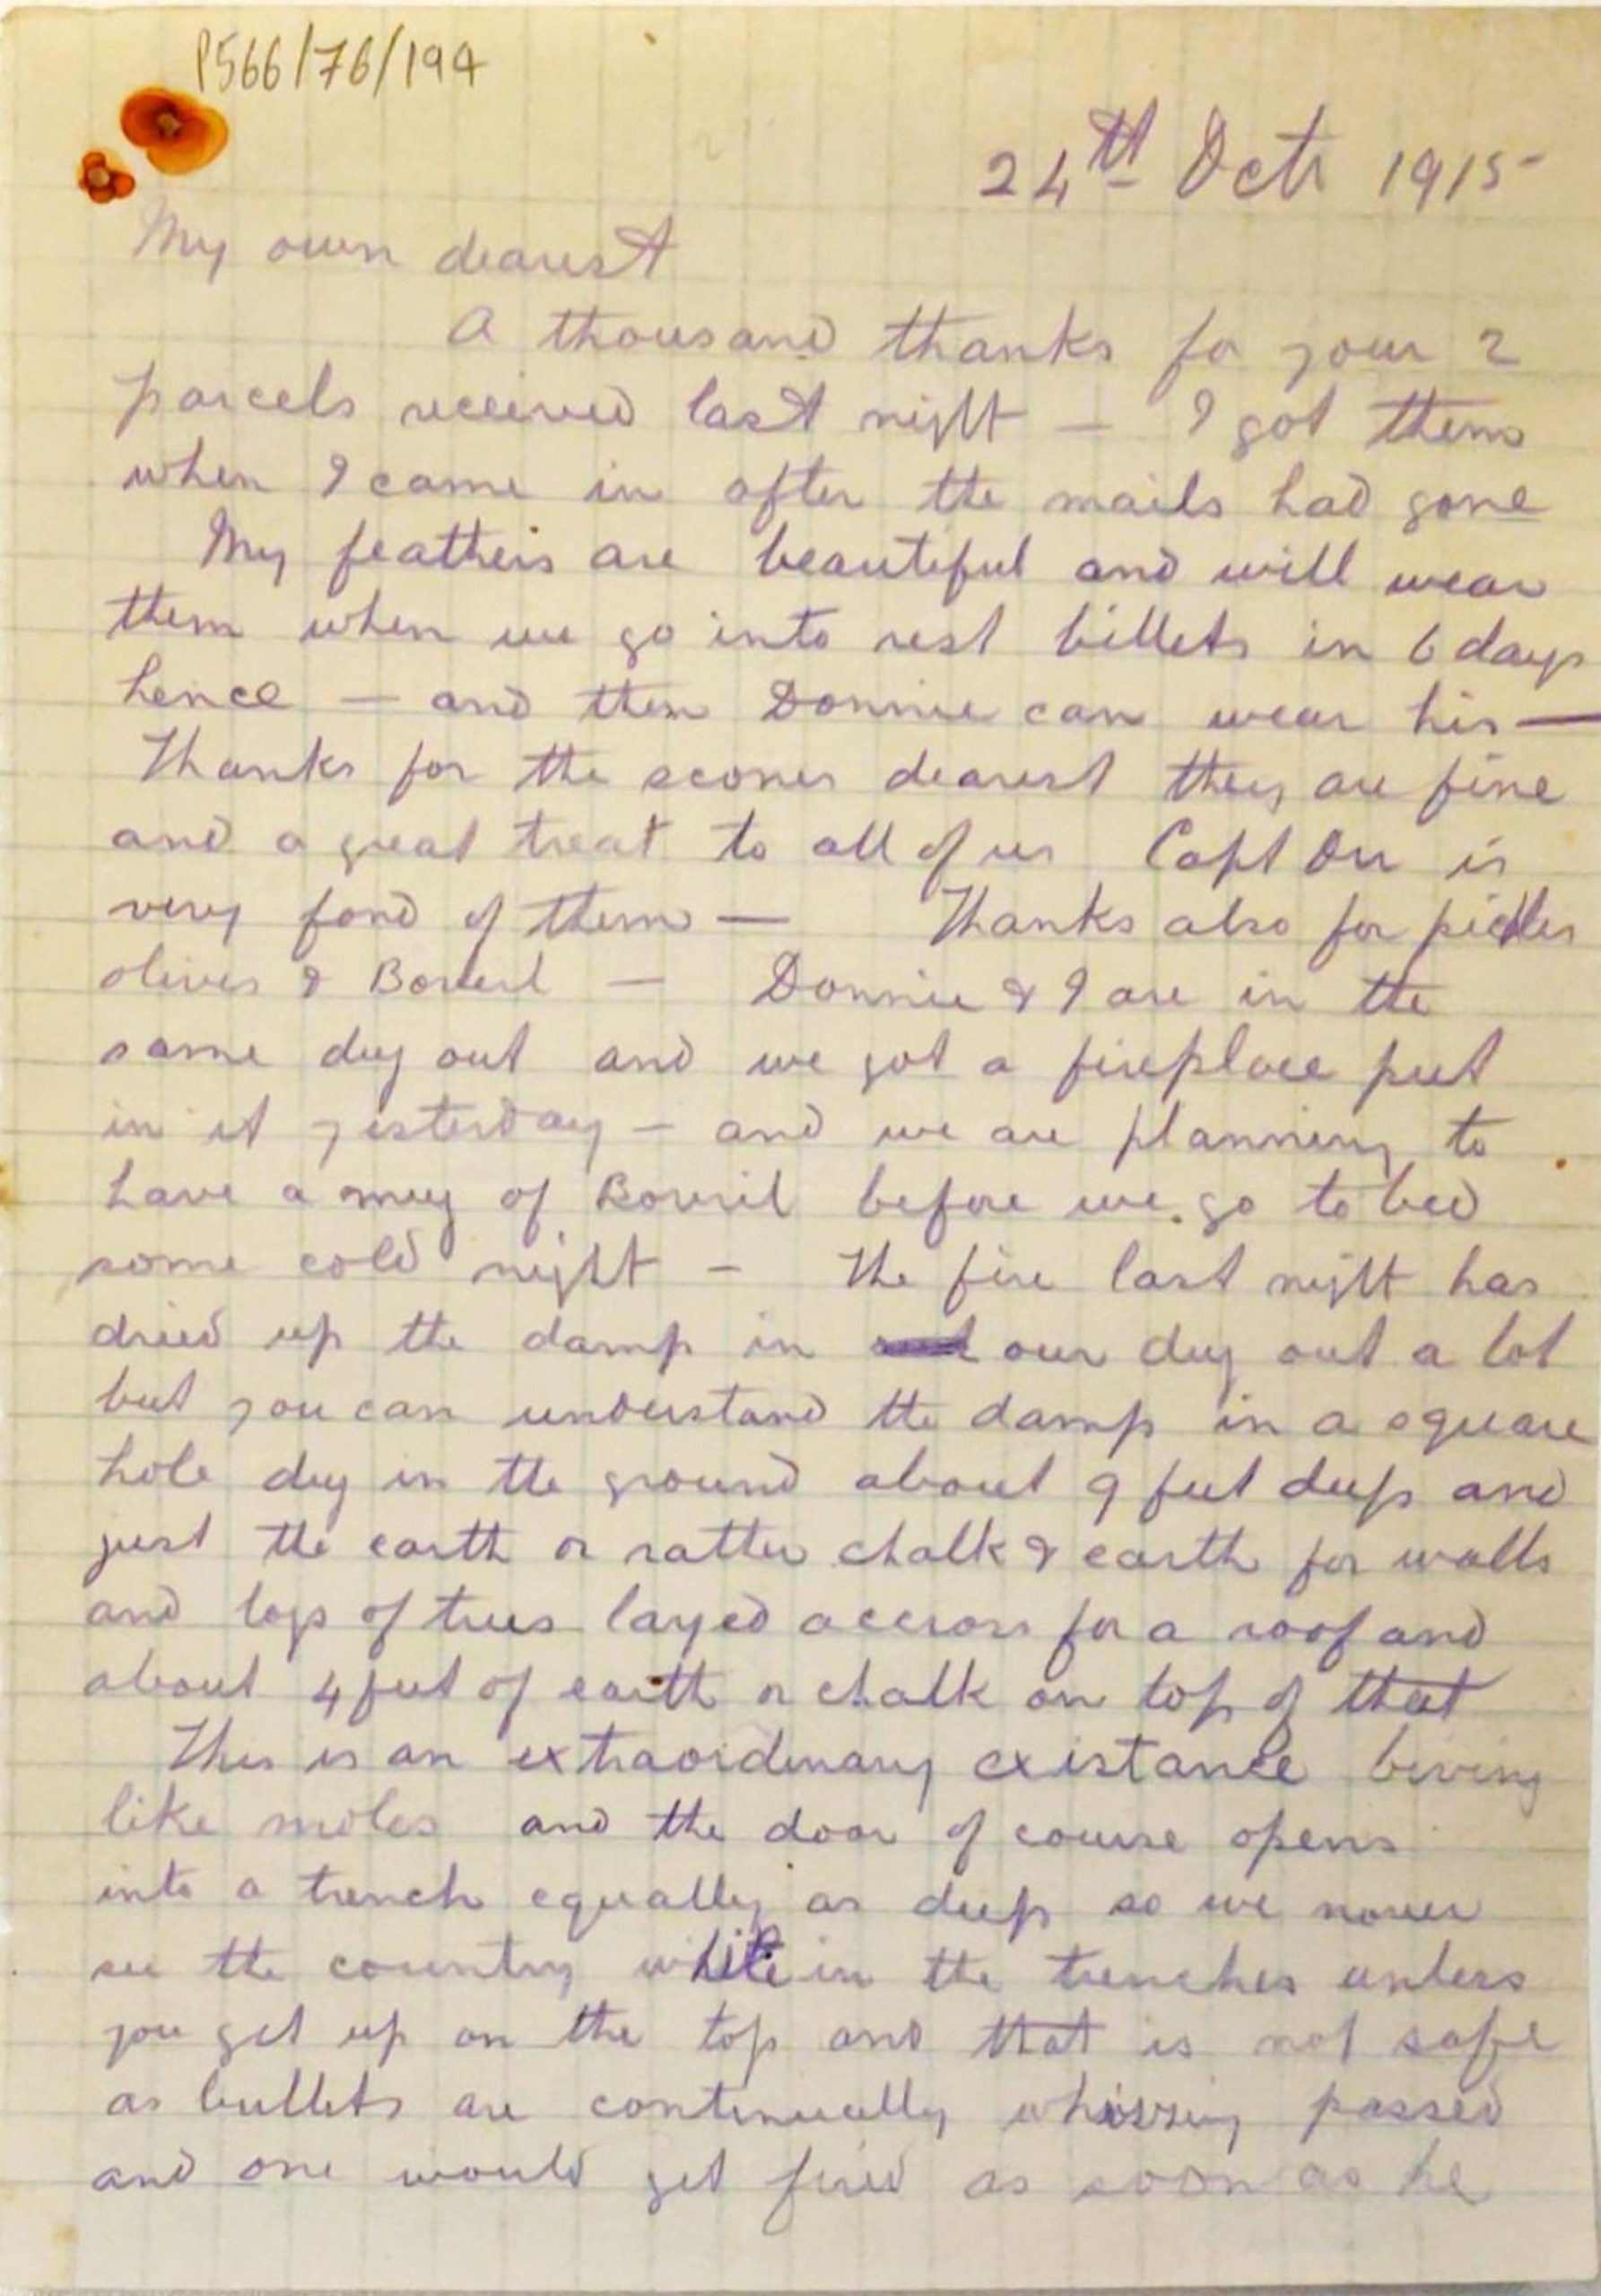 P566/76/194
24th Octr 1915
My own dearest
A thousand thanks for your 2
parcels received last night — I got them
when I came in after the mails had gone
My feathers are beautiful and will wear
them when we go into rest billets in 6 days
hence — and then Donnie can wear his —
Thanks for the scones dearest they are fine
and a great treat to all of us Capt Orr is
very fond of them — Thanks also for pickles
olives & Bovril — Donnie & I are in the
same dug out and we got a fireplace put
in it yesterday — and we are planning to
have a mug of Bovril before we go to bed
some cold night — The fire last night has
dried up the damp in our dug out a lot
but you can understand the damp in a square
hole dug in the ground about 9 feet deep and
just the earth or rather chalk & earth for walls
and logs of trees layed accross for a roof and
about 4 feet of earth or chalk on top of that
This is an extraordinary existance living
like moles and the door of course opens
into a trench equally as deep so we never
see the country while in the trenches unless
you get up on the top and that is not safe
as bullets are continually whizzing passed
and one would get fired as soon as he